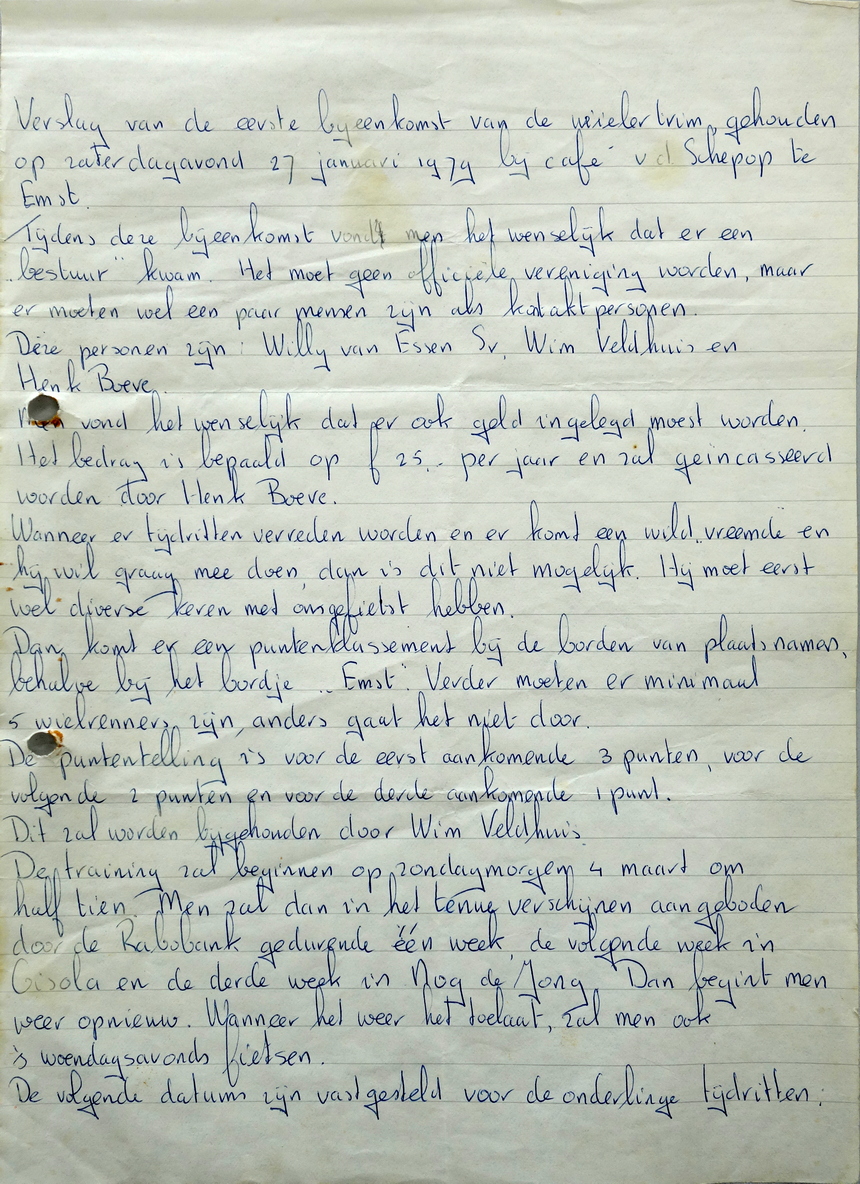 Verslag van de eerste bijeenkomst van de wielertrim, gehouden
op zaterdagavond 27 januari 1979 bij café v.d. Schepop te
Emst.
Tijdens deze bijeenkomst vondt men het wenselijk dat er een
"bestuur" kwam. Het moet geen officiële vereniging worden, maar
er moeten wel een paar mensen zijn als kontaktpersonen.
Deze personen zijn: Willy van Essen Sr, Wim Veldhuis en
Henk Boeve.
Men vond het wenselijk dat er ook geld ingelegd moest worden.
Het bedrag is bepaald op f 25,- per jaar en zal geincasseerd
worden door Henk Boeve.
Wanneer er tijdritten verreden worden en er komt een wild"vreemde" en
hij wil graag mee doen, dan is dit niet mogelijk. Hij moet eerst
wel diverse keren met ons gefietst hebben.
Dan komt er een puntenklassement bij de borden van plaatsnamen,
behalve bij het bordje "Emst". Verder moeten er minimaal
5 wielrenners zijn, anders gaat het niet door.
De puntentelling is voor de eerst aankomende 3 punten, voor de
volgende 2 punten en voor de derde aankomende 1 punt.
Dit zal worden bijgehouden door Wim Veldhuis.
De training zal beginnen op zondagmorgen 4 maart om
half tien. Men zal dan in het tenue verschijnen aangeboden
door de Rabobank gedurende één week, de volgende week in
Gisola en de derde week in Nog de Jong. Dan begint men
weer opnieuw. Wanneer het weer het toelaat, zal men ook
's woendagsavonds fietsen.
De volgende datums zijn vastgesteld voor de onderlinge tijdritten: